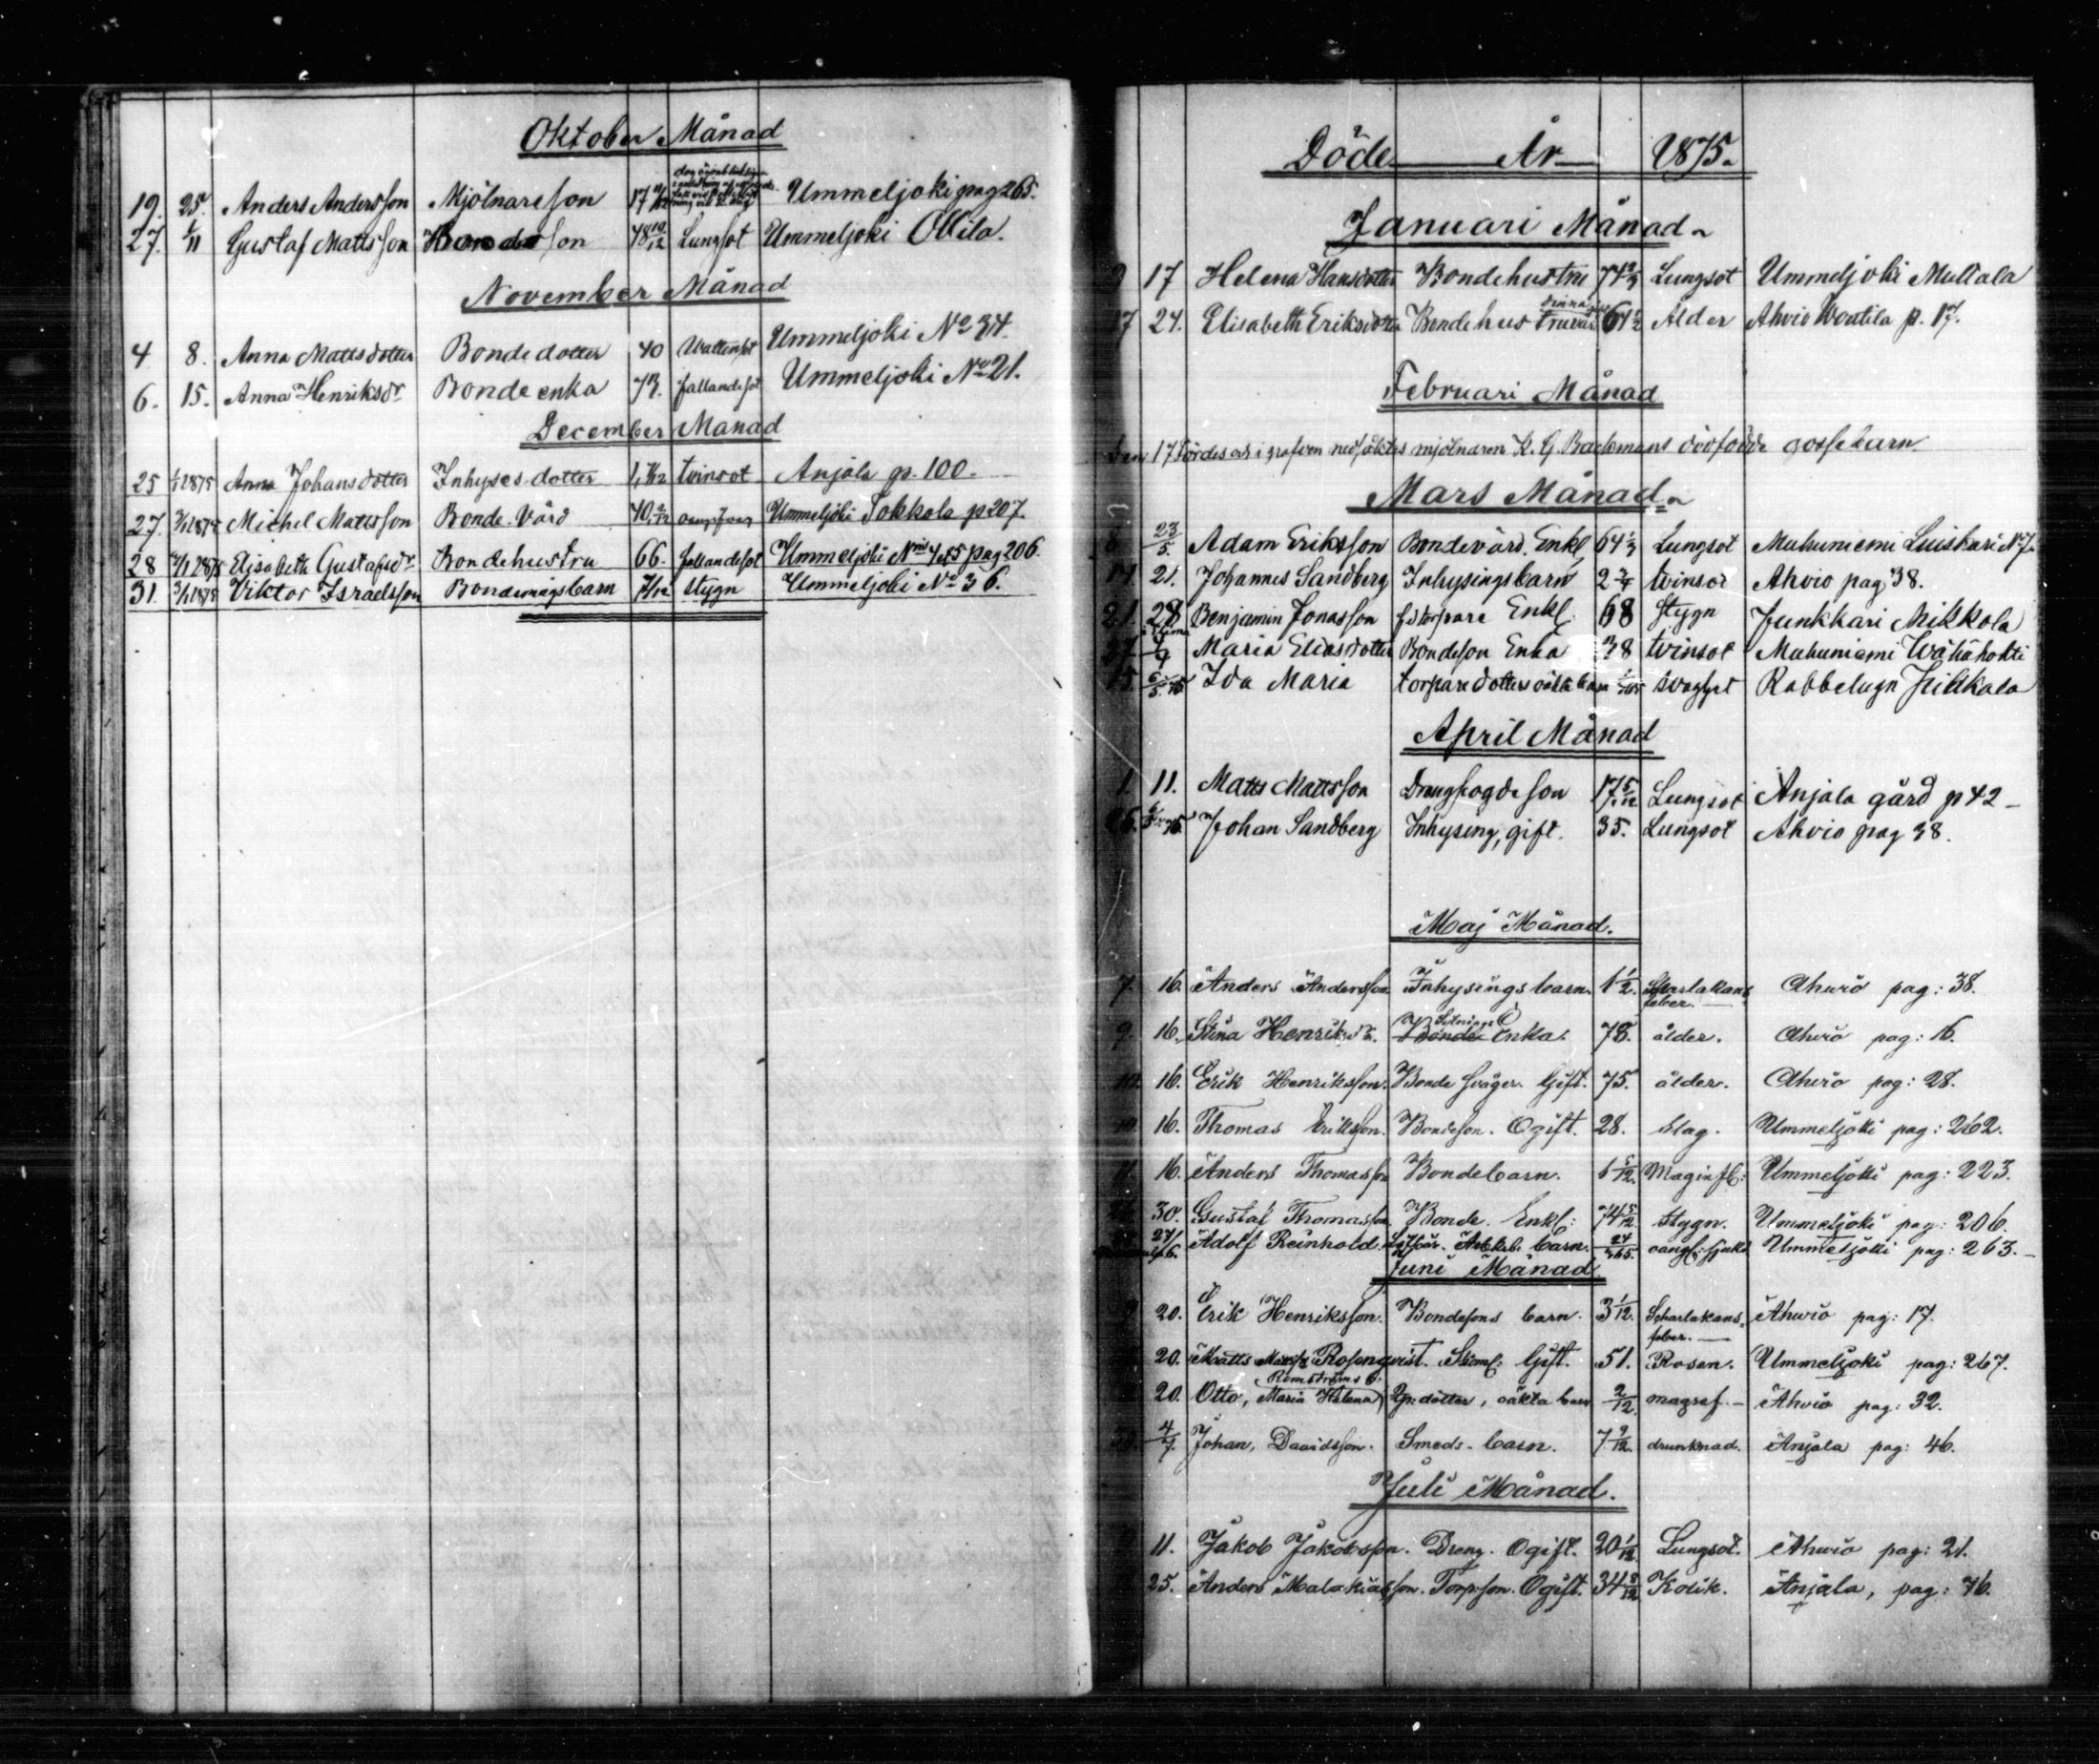 Oktober Månad
19. 25. Anders Andersson Mjölnareson 17 Ummeljoki pag 265.
27. 1/11 Gustaf Mattsson Bondeson 48 10/12 Lungsot Ummeljoki Ollila.
November Månad
4 8. Anna Mattsdotter Bondedotter 40 Wattensot Ummeljoki No 34.
6. 15. Anna Henriksdr Bonde enka 73. fallandesot Ummeljoki No 21.
December Månad
25 1/1 1875 Anna Johansdotter Inhyses dotter tvinsot Anjala p. 100.
27. Michel Mattsson Bonde. Vård 40 2/12 Ummeljoki Tokkola p 207.
28 Elisabeth Gustafsdr Bondehustru 66. fallandesot Ummeljoki pag 206.
31. Viktor Israelsson 7/12 Stygn Ummeljoki No 36.
Döde År 1875.
Januari Månad
9 17 Helena Hansdotter Bondehustru 74 Lungsot Ummeljoki Mullala
17 24. Elisabeth Eriksdotter Bondehustru 64 1/2 Ålder Ahvio Wontila p. 17.
Februari Månad
Den 17 i grafven nedsattes mjölnaren K. G. Backmans dödfödde gossebarn.
Mars Månad
8 23/5. Adam Eriksson Bondevärd. Enkl 64 Lungsot Muhuniemi Luiskari No 7.
14. 21. Johannes Sandberg Inhysingsbarn 2 3/4 tvinsot Ahvio pag 38.
21. 28 Benjamin Jonasson f.d torpare Enkl. 68 Stygn Junkkari Mikkola
27 Maria Eliasdotter Bondeson Enka 38 tvinsot Muhuniemi Wähähokti
15. Ida Maria torparedotters oäkta barn svaghet Rabbelugn
April Månad
1. 11. Matts Mattsson Drengfogdeson 17 5/12 Lungsot Anjala gård p 42
26. Johan Sandberg Inhysing, gift. 35. Lungsot Ahvio pag 38.
Maj Månad.
7. 16. Anders Andersson Inhysingsbarn. 1 1/2. Skarlakans feber. Ahvio pag: 38.
9. 16. Stina Henriksdr. Bonde Enka. 78. ålder. Ahvio pag: 16.
10. 16. Erik Henriksson. Bonde Svåger. Gift. 75. ålder. Ahvio pag: 28.
10. 16. Thomas Eriksson. Bondeson. Ogift. 28. slag. Ummeljoki pag: 262.
11. 16. Anders Thomasson Bondebarn. 6 5/12. Ummeljoki pag: 223.
30. Gustaf Thomasson. Bonde. Enkl: 74 5/12 Stygn. Ummeljoki pag: 206.
Adolf Reinhold barn. 24/365. Ummeljoki pag: 263.
Juni Månad.
20. Erik Henriksson. Bondesons barn. 3 1/12. Scharlakans feber. Ahvio pag: 17.
20. Matts Mattss. Rosenqvist. Gift. 51. Rosen. Ummeljoki pag: 267.
20. Otto, Maria Helena dotter, oäkta barn 2/12. magref. Ahvio pag: 32.
4/7. Johan, Davidsson. Smeds-barn. 7 9/12. drunknad. Anjala pag: 46.
Juli Månad.
11. Jakob Jakobsson. Dreng. Ogift. 20 1/12. Lungsot. Ahvio pag: 21.
25. Anders Malakiasson. Torp:son. Ogift. 34 Kolik. Anjala, pag: 76.